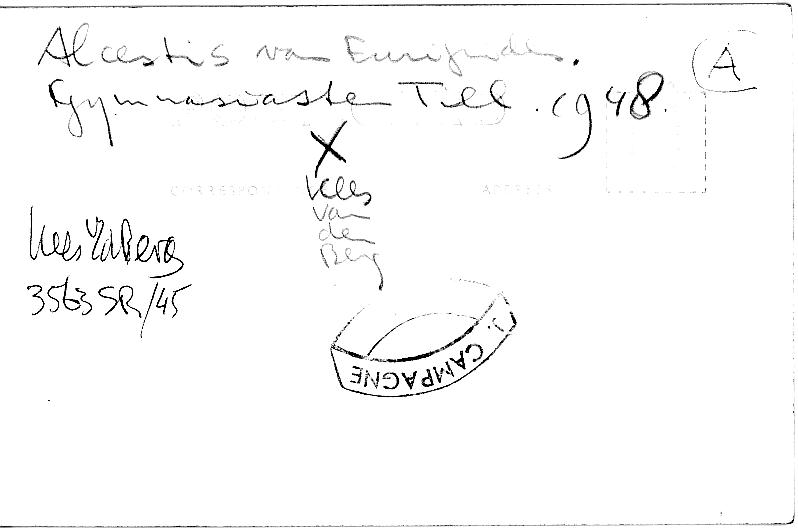 Alcestis van Euripides.
Gymnasiasten Till. 1948.
A
X
CORRESPON
ADDRESS
Kees
van
den
Berg
Kees vd Berg
3563 SR/45
J. CAMPAGNE